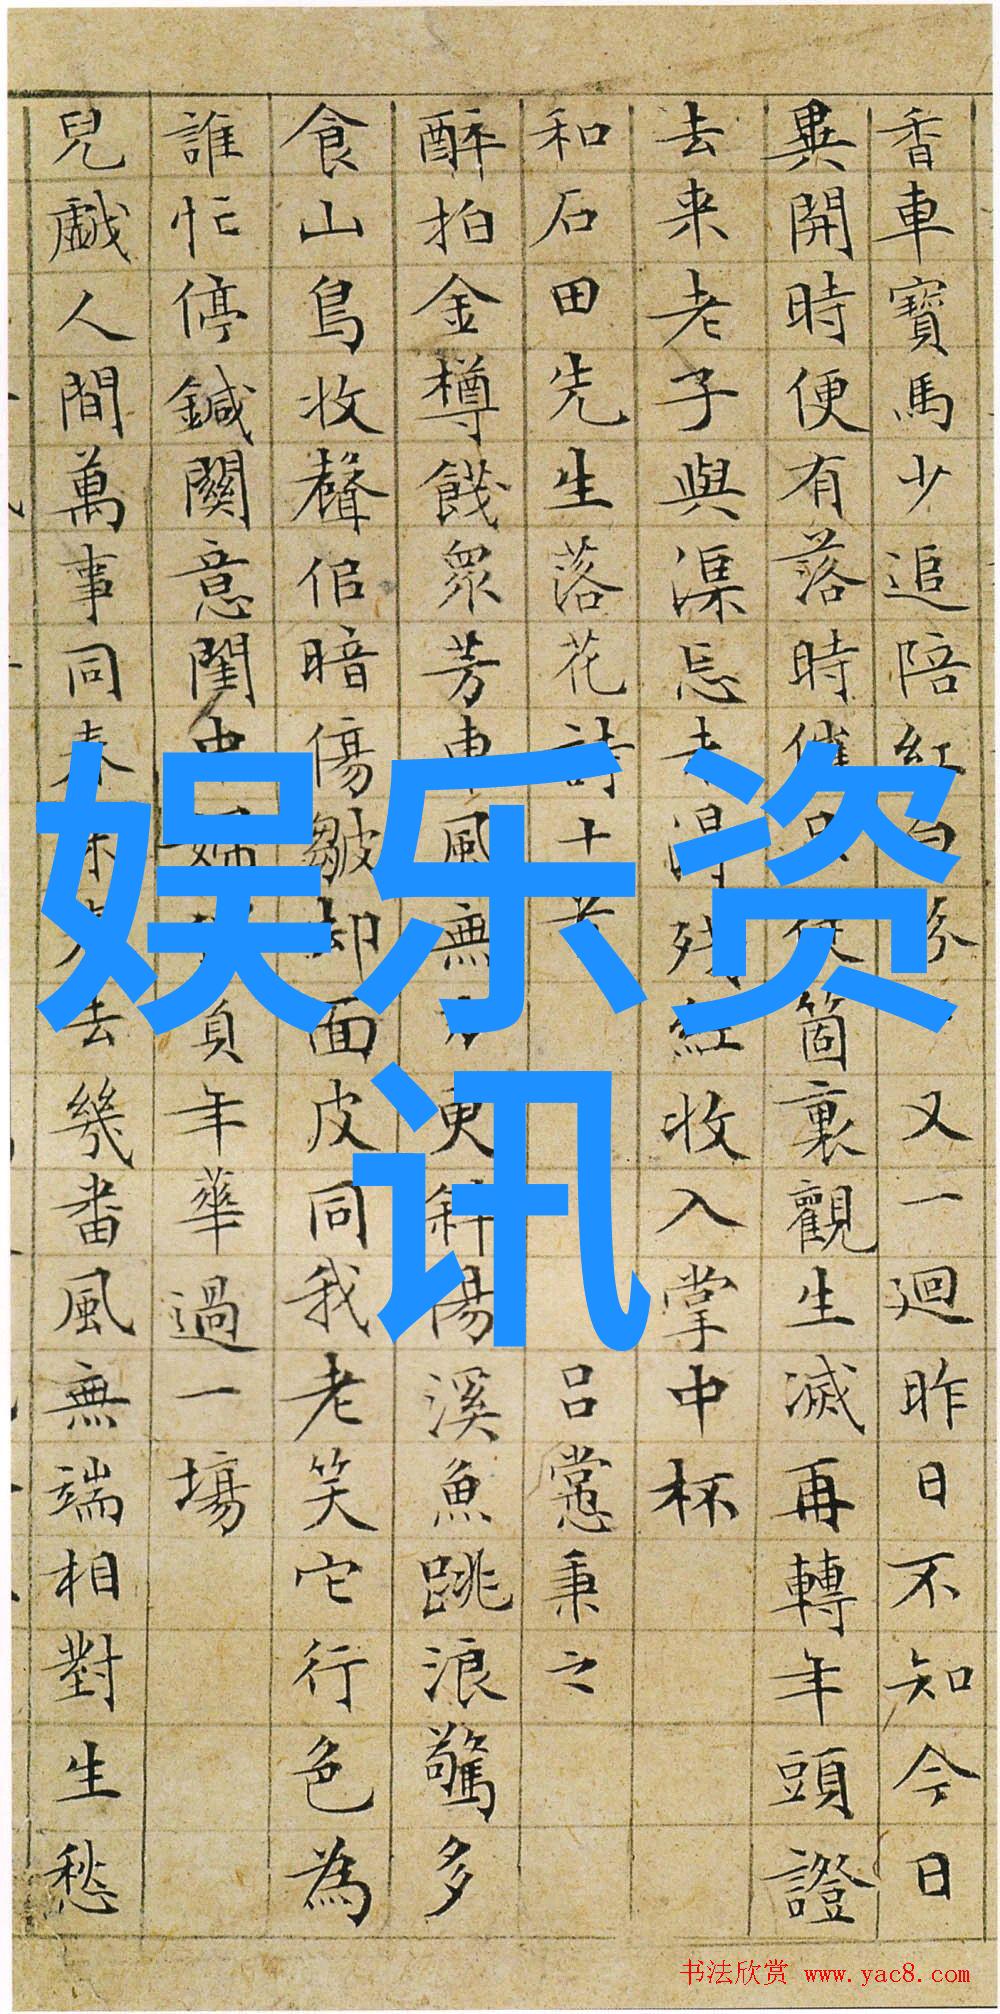 香車寶馬少追陪紅白紛又一迴昨日不知今日
異開時便有落時催箇裏觀生滅再轉年頭證
去来老子與渠忘殘紅收入掌中杯
和石田先生落花詩十首 呂㦂秉之
醉拍金樽餞眾芳東風無更斜陽溪魚跳浪驚多
食山鳥收聲倍暗傷皺却面皮同我老笑它行色為
誰忙停鍼關意閨中負年華過一場
兒戲人間萬事同春去幾番風無端相對生愁
娱乐资
讯
书法欣赏 www.yac8.com